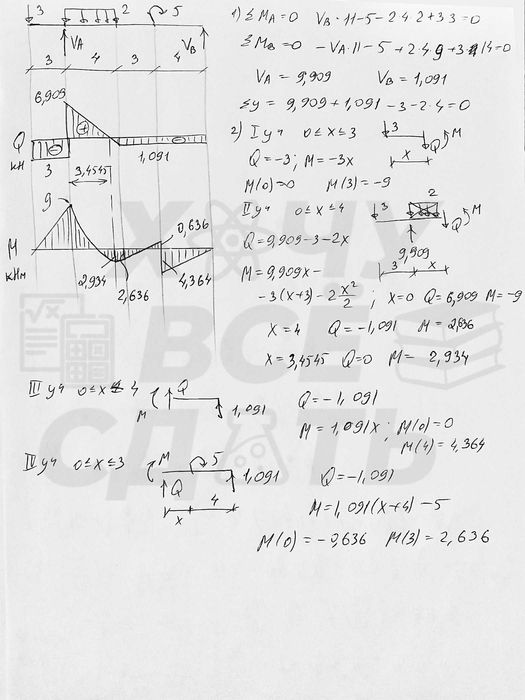 3 2 5
V_A V_B
3 4 3 4
6,909
Q
кН
3
1,091
3,4545
9
0,636
M
кНм
2,934
2,636
4,364
1) ΣM_A=0 V_B·11-5-2·4·2+3·3=0
ΣM_B=0 -V_A·11-5+2·4·9+3·14=0
V_A = 9,909 V_B = 1,091
Σy = 9,909+1,091-3-2·4=0
2) I уч 0≤x≤3
3 Q M
x
Q=-3; M=-3x
M(0)=0 M(3)=-9
II уч 0≤x≤4
3 2 Q M
9,909
3 x
Q=9,909-3-2x
M=9,909x-
-3(x+3)-2 x²/2; x=0 Q=6,909 M=-9
x=4 Q=-1,091 M=2,636
x=3,4545 Q=0 M=2,934
III уч 0≤x≤4
M Q 1,091
Q=-1,091
M=1,091x; M(0)=0
M(4)=4,364
IV уч 0≤x≤3
M 5 1,091
Q
x 4
Q=-1,091
M=1,091(x+4)-5
M(0)=-0,636 M(3)=2,636
ХОЧУ
ВСЁ
СДАТЬ